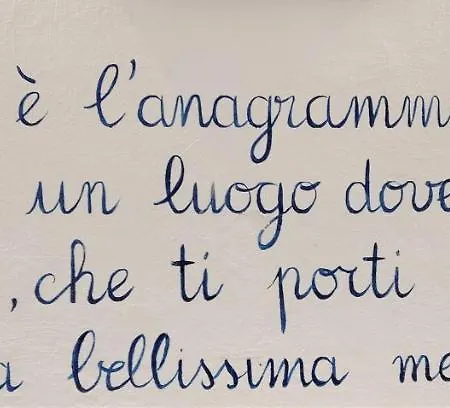 è l'anagramm
un luogo dove
, che ti porti
a bellissima me